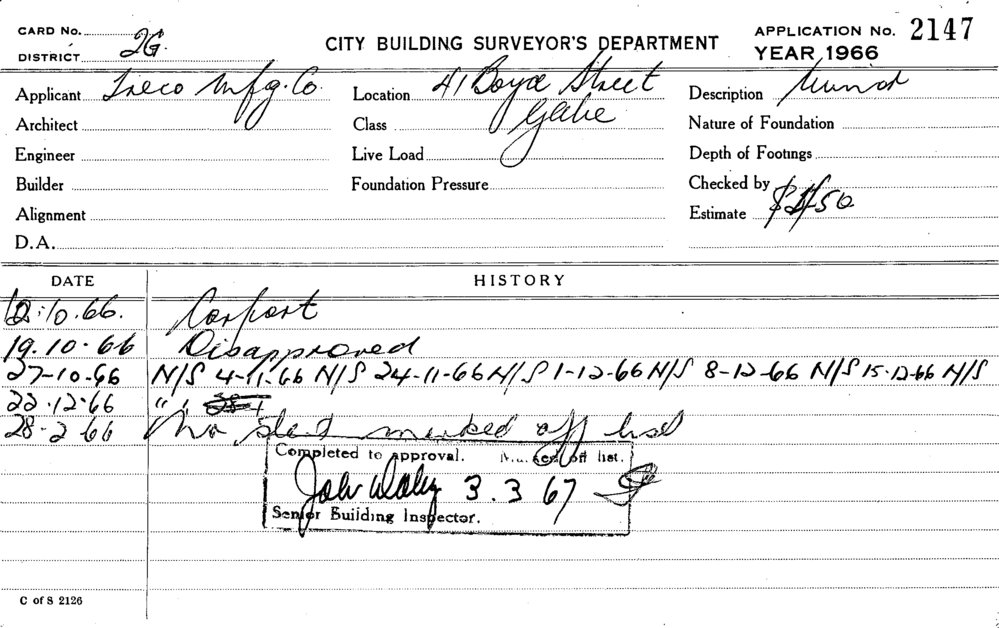 CARD No.
DISTRICT 2G.
CITY BUILDING SURVEYOR'S DEPARTMENT
APPLICATION No. 2147
YEAR 1966
Applicant Treco Mfg. Co. Location 41 Boyce Street Description Minor
Architect Class Glebe Nature of Foundation
Engineer Live Load Depth of Footings
Builder Foundation Pressure Checked by
Alignment Estimate
D.A.
DATE HISTORY
10.66. Carport
19.10.66 Disapproved
27-10-66 N/S 4-11-66 N/S 24-11-66 N/S 1-12-66 N/S 8-12-66 N/S 15-12-66 N/S
22.12.66 " "
28-2-66 No start marked off list
Completed to approval. Marked off list.
3.3.67
Senior Building Inspector.
C of S 2126